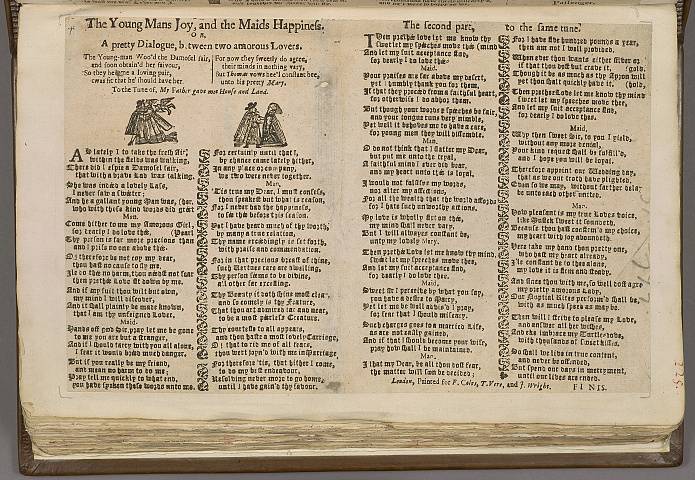 The Young Mans Joy, and the Maids Happiness.
Or,
A pretty Dialogue, between two amorous Lovers.
The Young-man Woo'd the Damosel fair,
and soon obtain'd her favour,
So they became a loving pair,
twas fit that he should have her.
For now they sweetly do agree,
their minds in nothing vary,
But Thomas vows hee'l constant be,
unto his pretty Mary.
To the Tune of, My Father gave me House and Land.
AS lately I to take the fresh Air,
within the fields was walking,
There did I espie a Damosel fair,
that with a brave Lad was talking.
She was indeed a lovely Lass,
I never saw a sweeter;
And he a gallant young Man was, sure,
who with these kind words did greet
Man.
Come hither to me my Amorous Girl,
for dearly I do love thee,
Thy person is far more precious than (Pearl
and I prize no one above thee.
O; therefore be not coy my dear,
thou hast no cause to fly me,
Ile do thee no harm, thou needst not fear
then prethee Love sit down by me.
And if my suit thou wilt but obtain,
my mind I will discover,
And it shall plainly be made known,
that I am thy unfeigned Lover.
Maid.
Hands off good Sir, pray let me be gone
to me you are but a stranger,
And if I should tarry with you all alone,
I fear it would breed much danger.
But if you really be my friend,
and mean no harm to do me;
Pray tell me quickly to what end,
you have spoken these words unto me.
For certainly until that,
by chance came lately hither,
In any place or company,
we two were never together.
Man.
'Tis true my Dear, I must confess,
then speakest but what is reason,
For I never had the happiness,
to see thee before this season.
Yet I have heard much of thy worth,
by many a true relation,
Thy name exceedingly is set forth,
with praise and commendation.
For in that precious breast of thine,
such Vertues rare are dwelling,
Thy person seems to be divine,
all other far excelling.
Thy Beauty it doth shine most clear,
and so comely is thy Feature,
That thou art admired far and near,
to be a most parfect Creature.
Thy courtesie to all appears,
and thou hast a most lovely Carriage,
O; that to rid me of all fears,
thou wert joyn'd with me in Marriage.
For therefore 'tis, that hither I come,
to do my best endeavour,
Resolving never more to go home,
until I have gain'd thy favour.
The second part, to the same tune.
Then prethee love let me know thy
sweet let my speeches move thee (mind
And let my suit acceptance find,
for dearly I do love thee.
Maid.
Your praises are far above my desert,
yet I humbly thank you for them,
If that they proceed from a faithful heart,
for otherwise I do abhor them.
But though your words & speeches be fair,
and your tongue runs very nimble,
Yet well it behoves me to have a care,
for young men they will dissemble.
Man.
O do not think that I flatter Dear,
but put me unto the tryal,
A faithful mind I ever did bear,
and my heart unto thee is loyal.
I would not falsifie my words,
nor alter my affections,
For all the wealth that the world affords
for I hate such unworthy actions.
My love is wholly set on thee,
my mind shall never vary.
But I will always constant be,
unto my lovely Mary.
Then prethee Love let me know thy mind,
sweet let my speeches move thee,
And let my suit acceptance find,
for dearly I do love thee.
Maid.
Sweet Sir I perceive by what you say,
you have a desire to Marry,
Yet let me be well advis'd I pray,
for fear that I should miscarry.
Such charges goes to a married Life,
as are not easily gained,
And if that I should become your wife,
pray how shall I be maintained.
Man.
I that my Dear, be all thou dost fear,
the matter will soon be decided;
For I have five hundred pounds a year,
then am not I well provided.
When ever thou wants either silver or
if that thou dost but crave it, (gold,
Though it be as much as thy Apron will
yet thou shalt quickly have it. (hold,
Then prethee Love let me know thy mind
sweet let my speeches move thee,
And let my suit acceptance find,
for dearly I do love thee.
Maid,
Why then sweet Sir, to you I yield,
without any more denial,
Your kind request shall be fulfill'd,
and I hope you will be loyal.
Therefore appoint our Wedding day,
that as we our troth have plighted,
Even so we may, without farther delay
be unto each other united.
Man.
How pleasant is my true Loves voice,
like Musick sweet it soundeth,
Because thou hast constru'd my choice,
my heart with joy aboundeth.
Here take my hand thou pretty one,
who hast my heart already,
Ile constant be to thee alone,
my love it is firm and steady.
And since thou with me, so well dost agree
my pretty amorous Lady,
Our Nuptial Rites perform'd shall be,
with as much speed as may be.
Then will I strive to please my Love,
and answer all her wishes,
And eke imbrace my Turtle dove,
with thousands of sweet kisses.
So shall we live in true content,
and never be offended,
But spend our days in merryment,
until our lives are ended.
London, Printed for F. Coles, T. Vere, and J. Wright.
FINIS.